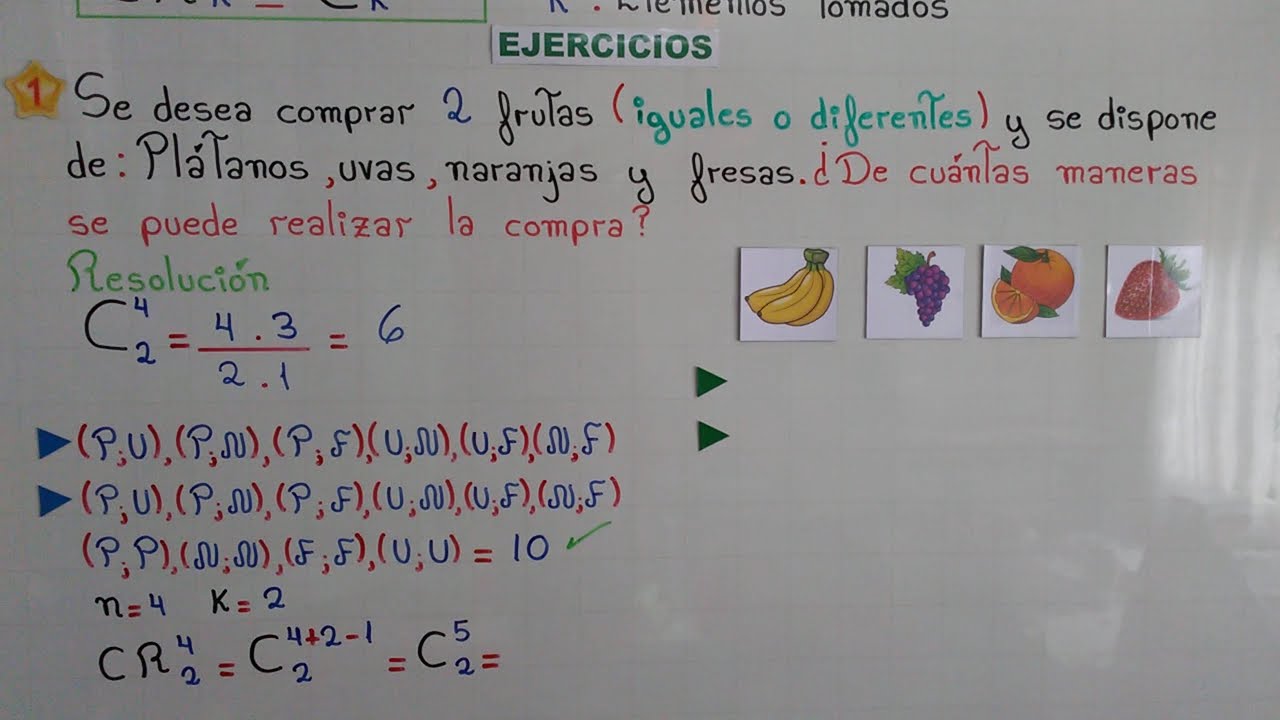 K = K K : Elementos Tomados
EJERCICIOS
1 Se desea comprar 2 frutas (iguales o diferentes) y se dispone
de: Plátanos, uvas, naranjas y fresas. ¿De cuántas maneras
se puede realizar la compra?
Resolución
C⁴₂ = 4 . 3 / 2 . 1 = 6
(P;U),(P;N),(P;F)(U;N),(U;F)(N;F)
(P;U),(P;N),(P;F)(U;N),(U;F),(N;F)
(P;P),(N;N),(F;F),(U;U) = 10 ✓
n=4 K=2
CR⁴₂ = C⁴⁺²⁻¹₂ = C⁵₂ =